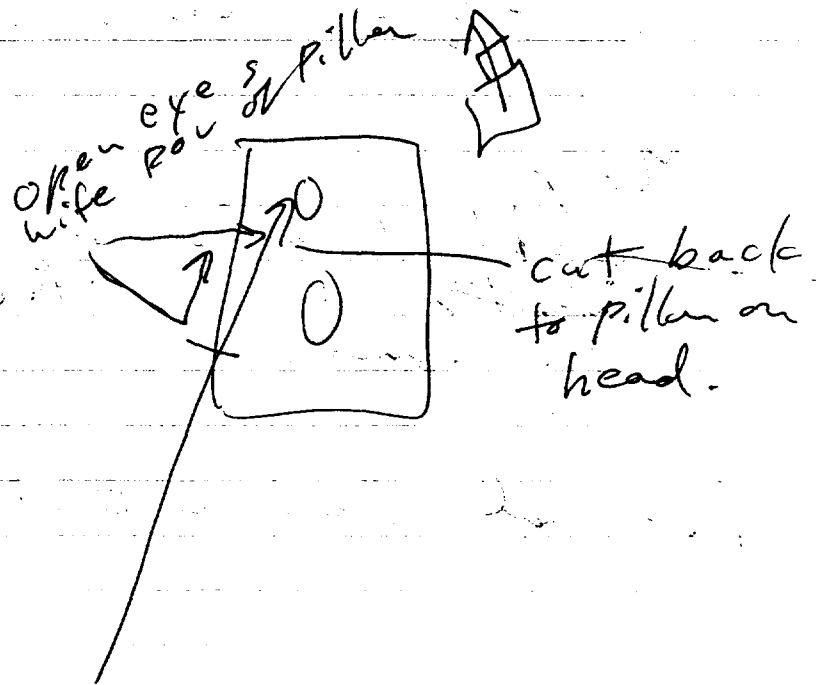 open eyes
wife pov of pillow
cut back
to pillow on
head.